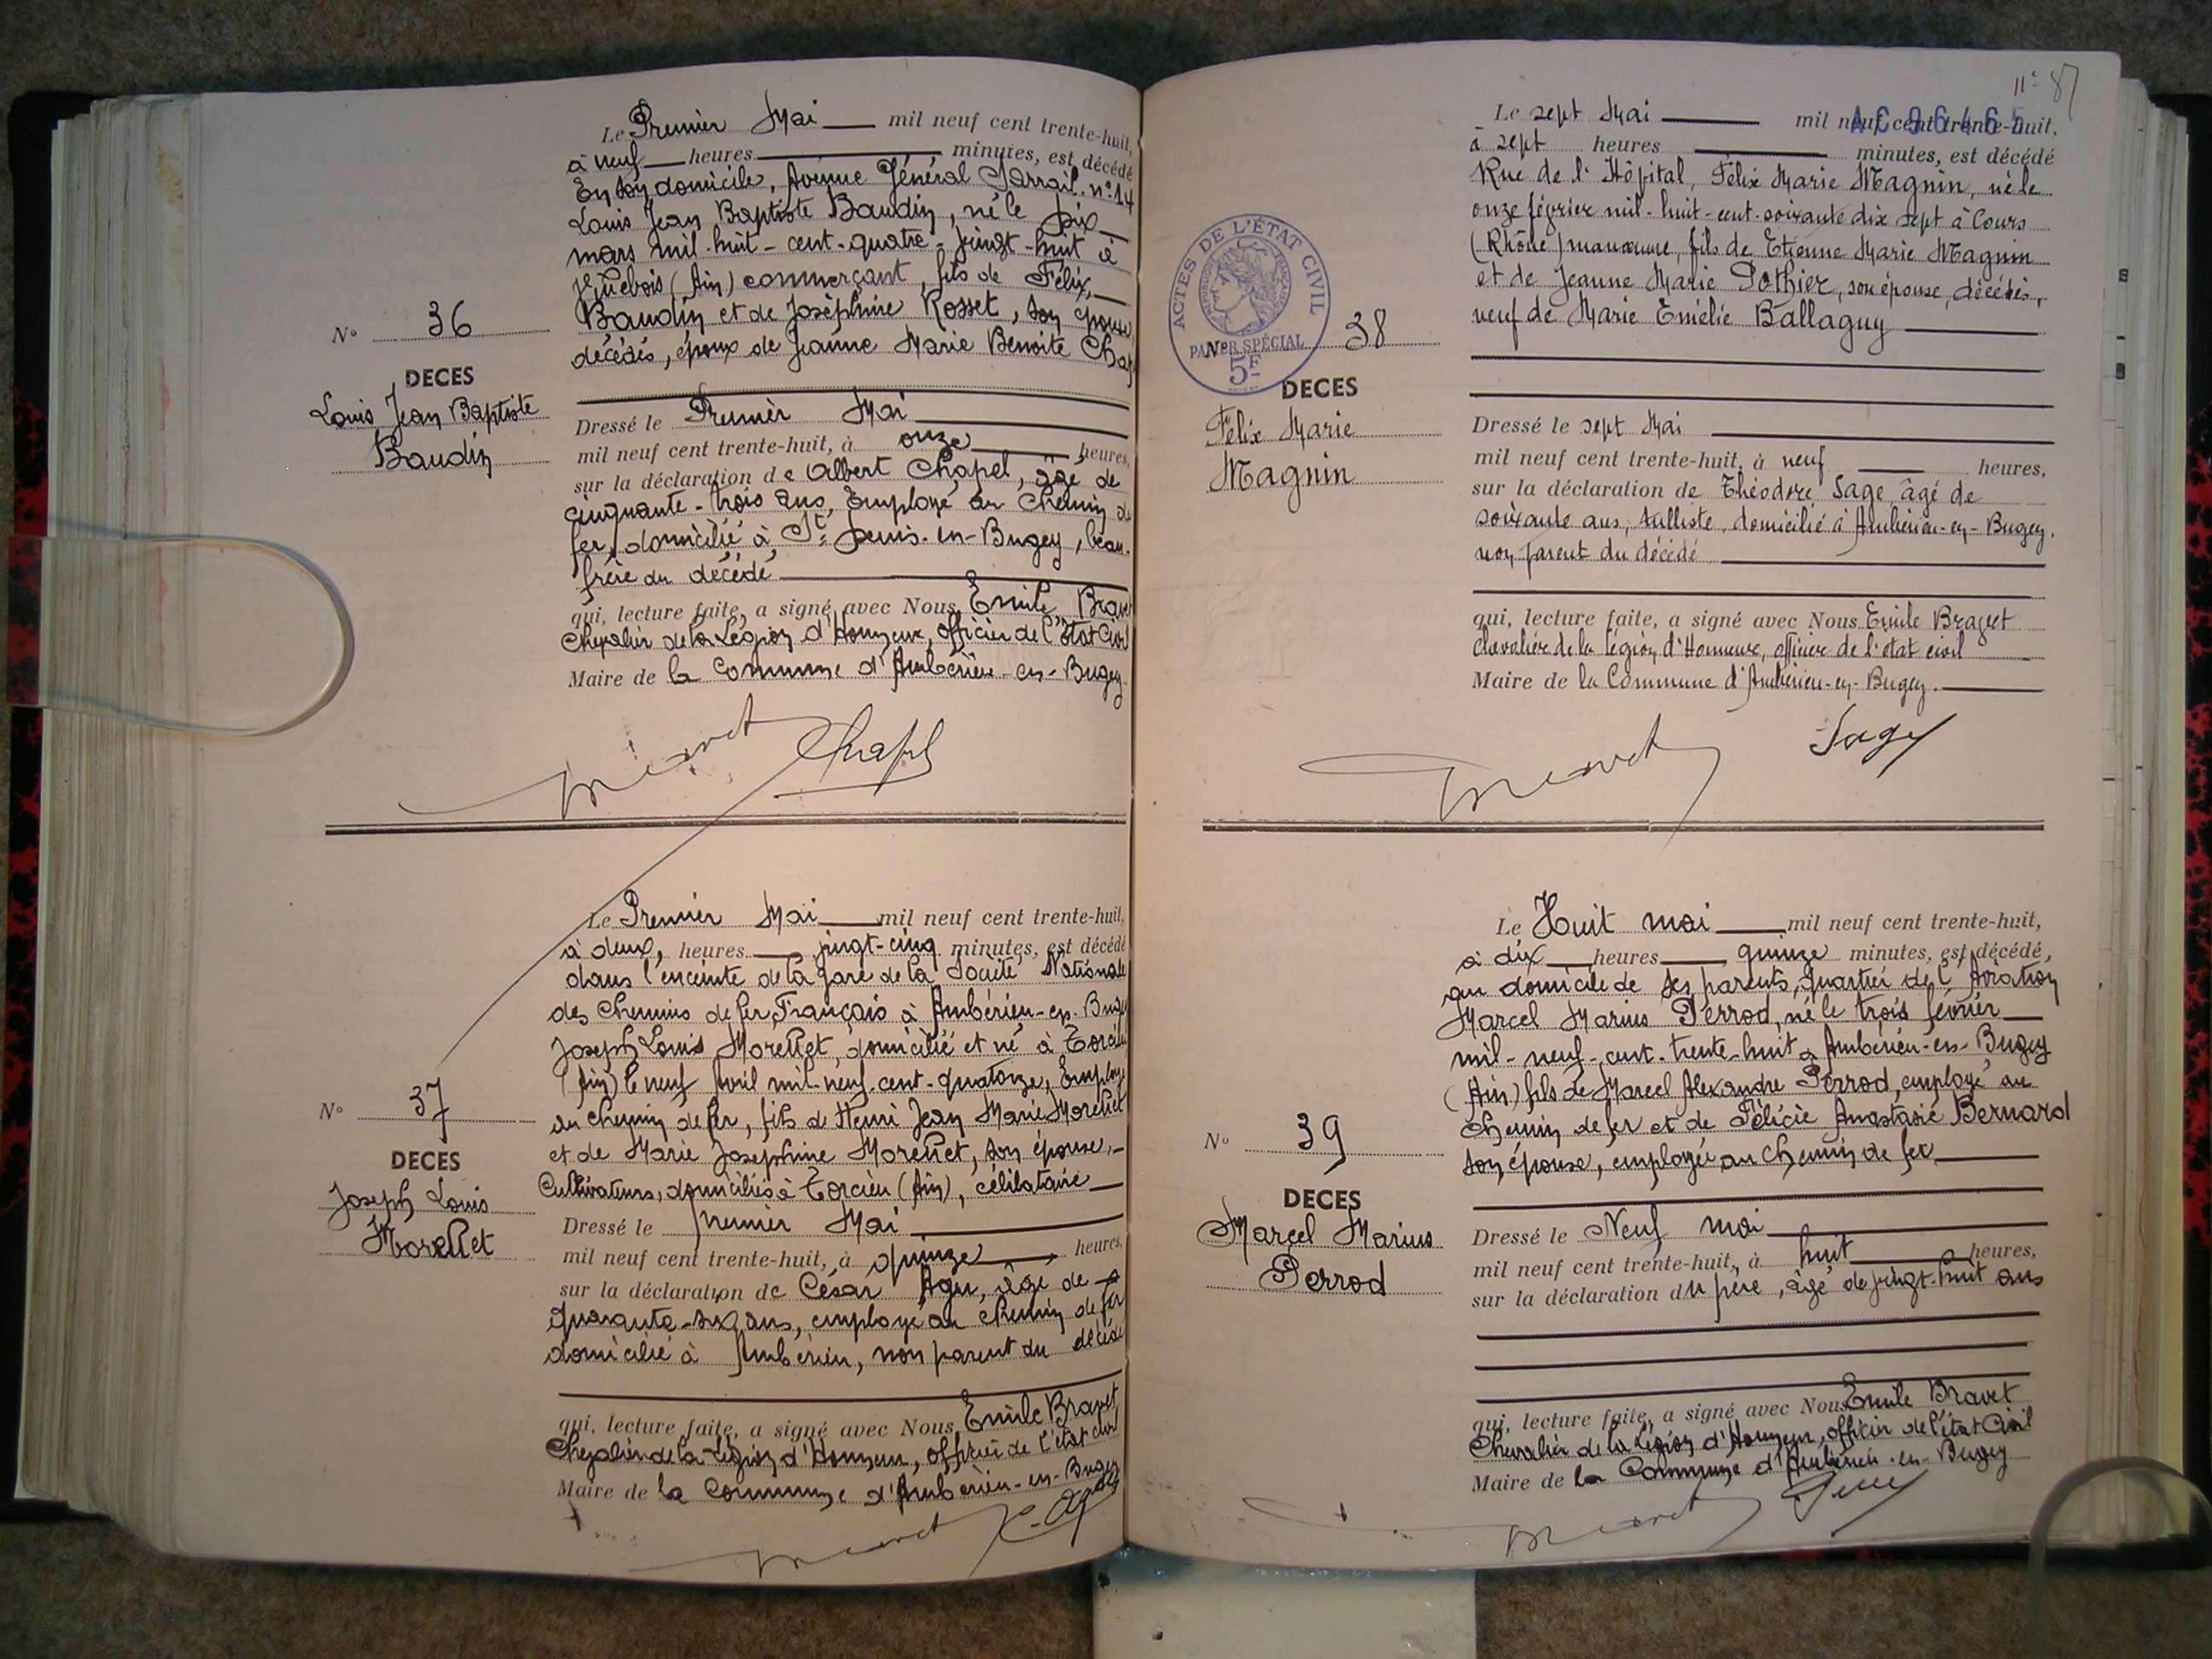 Le Premier Mai mil neuf cent trente-huit,
à neuf heures minutes, est décédé
En son domicile, Avenue Général Sarrail. n° 14
Louis Jean Baptiste Baudin, né le dix
mars mil-huit-cent-quatre-vingt-huit à
(Ain) commerçant, fils de Félix
Baudin et de Joséphine Rosset, son épouse
décédés, époux de Jeanne Marie Benoite Chap
N° 36
DECES
Louis Jean Baptiste
Baudin
Dressé le Premier Mai
mil neuf cent trente-huit, à onze heures,
sur la déclaration de Albert Chapel, âgé de
cinquante-trois ans, Employé au Chemin de
fer, domicilié à St Denis-en-Bugey, beau-
frère du décédé
qui, lecture faite, a signé avec Nous Emile Brav
Chevalier de la Légion d'Honneur, officier de l'Etat Civil
Maire de la Commune d'Ambérieu-en-Bugey
Chapel
Le Premier Mai mil neuf cent trente-huit,
à deux, heures vingt-cinq minutes, est décédé
dans l'enceinte de la gare de la Société Nationale
des Chemins de fer Français à Ambérieu-en-Bugey
Joseph Louis Morellet, domicilié et né à Torcieu
(Ain) le neuf Avril mil-neuf-cent-quatorze, Employé
au chemin de fer, fils de Henri Jean Marie Morellet
et de Marie Josephine Morellet, son épouse,
Cultivateurs, domiciliés à Torcieu (Ain), célibataire
N° 37
DECES
Joseph Louis
Morellet
Dressé le premier Mai
mil neuf cent trente-huit, à quinze heures
sur la déclaration de César Agu, âgé de
quarante-six ans, employé au chemin de fer
domicilié à Ambérieu, non parent du décédé
qui, lecture faite, a signé avec Nous Emile Bravet
Chevalier de la Légion d'Honneur, officier de l'état civil
Maire de la Commune d'Ambérieu-en-Bugey
n° 87
AC 96465
Le sept Mai mil neuf cent trente-huit,
à sept heures minutes, est décédé
Rue de l'Hôpital, Félix Marie Magnin, né le
onze février mil-huit-cent-soixante dix sept à Cours
(Rhône) manœuvre, fils de Etienne Marie Magnin
et de Jeanne Marie Pothier, son épouse, décédés,
veuf de Marie Emélie Ballaguy
ACTES DE L'ÉTAT CIVIL
RÉPUBLIQUE FRANÇAISE
PAPIER SPÉCIAL
5F
N° 38
DECES
Félix Marie
Magnin
Dressé le sept Mai
mil neuf cent trente-huit, à neuf heures,
sur la déclaration de Théodore Sage, âgé de
soixante ans, tulliste, domicilié à Ambérieu-en-Bugey.
non parent du décédé
qui, lecture faite, a signé avec Nous Emile Bravet
chevalier de la légion d'Honneur, officier de l'état civil
Maire de la Commune d'Ambérieu-en-Bugey.
Sage
Le Huit mai mil neuf cent trente-huit,
à dix heures quinze minutes, est décédé,
au domicile de ses parents, quartier de l'Aviation
Marcel Marius Perrod, né le trois février
mil-neuf-cent-trente-huit à Ambérieu-en-Bugey
(Ain) fils de Marcel Alexandre Perrod, employé au
chemin de fer et de Félicie Anastasie Bernard
son épouse, employée au chemin de fer
N° 39
DECES
Marcel Marius
Perrod
Dressé le Neuf mai
mil neuf cent trente-huit, à huit heures,
sur la déclaration du père, âgé de vingt-huit ans
qui, lecture faite, a signé avec Nous Emile Bravet
Chevalier de la Légion d'Honneur, officier de l'état Civil
Maire de la Commune d'Ambérieu-en-Bugey